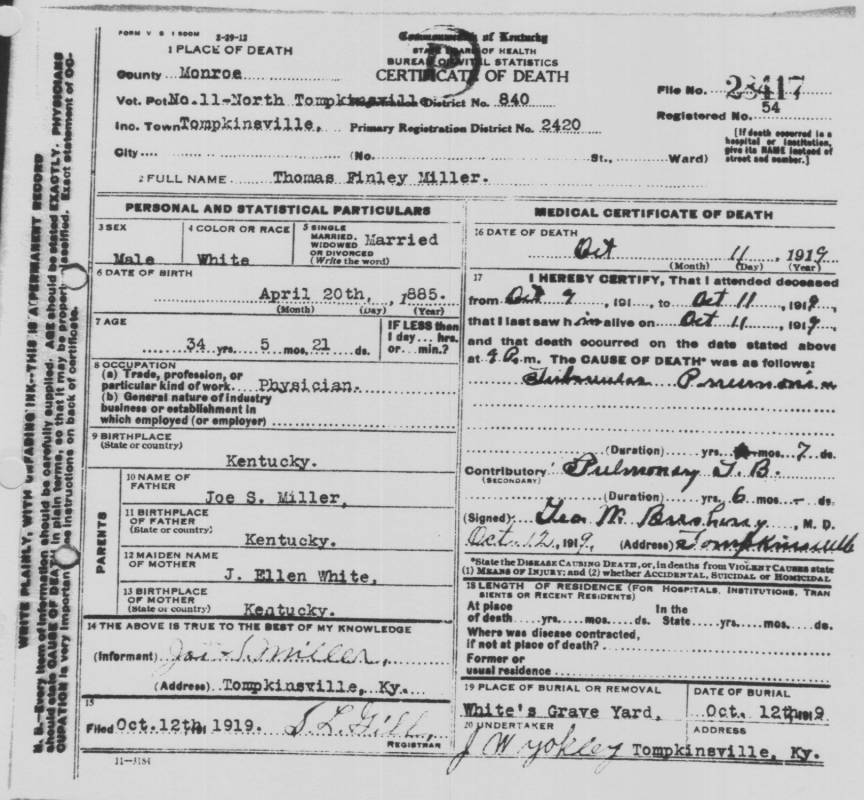 FORM V S 1 500M 2-29-12
Commonwealth of Kentucky
STATE BOARD OF HEALTH
BUREAU OF VITAL STATISTICS
CERTIFICATE OF DEATH
1 PLACE OF DEATH
County Monroe
Vot. Pct No. 11-North Tompkinsville District No. 840
Inc. Town Tompkinsville, Primary Registration District No. 2420
City (No. St., Ward)
File No. 28417
Registered No. 54
[If death occurred in a hospital or institution, give its NAME instead of street and number.]
2 FULL NAME Thomas Finley Miller.
PERSONAL AND STATISTICAL PARTICULARS
3 SEX Male
4 COLOR OR RACE White
5 SINGLE MARRIED, WIDOWED OR DIVORCED (Write the word) Married
6 DATE OF BIRTH
April 20th, 1885.
(Month) (Day) (Year)
7 AGE
34 yrs. 5 mos. 21 ds.
IF LESS than 1 day... hrs. or... min.?
8 OCCUPATION
(a) Trade, profession, or particular kind of work Physician.
(b) General nature of industry business or establishment in which employed (or employer)
9 BIRTHPLACE
(State or country) Kentucky.
PARENTS
10 NAME OF FATHER Joe S. Miller,
11 BIRTHPLACE OF FATHER (State or country) Kentucky.
12 MAIDEN NAME OF MOTHER J. Ellen White,
13 BIRTHPLACE OF MOTHER (State or country) Kentucky.
14 THE ABOVE IS TRUE TO THE BEST OF MY KNOWLEDGE
(Informant) Joe S. Miller,
(Address) Tompkinsville, Ky.
15
Filed Oct. 12th 191 1919. S. L. Gill,
REGISTRAR
11-3184
MEDICAL CERTIFICATE OF DEATH
16 DATE OF DEATH
Oct 11, 1919
(Month) (Day) (Year)
17 I HEREBY CERTIFY, That I attended deceased
from Oct 9, 191 , to Oct 11, 1919,
that I last saw him alive on Oct 11, 1919,
and that death occurred on the date stated above
at 9 P. m. The CAUSE OF DEATH* was as follows:
Tubercular Pneumonia
(Duration) yrs. mos. 7 ds.
Contributory Pulmonary T.B.
(SECONDARY)
(Duration) yrs. 6 mos. - ds.
(Signed) Geo W. , M. D.
Oct. 12, 1919, (Address) Tompkinsville
*State the DISEASE CAUSING DEATH, or, in deaths from VIOLENT CAUSES state
(1) MEANS OF INJURY; and (2) whether ACCIDENTAL, SUICIDAL OR HOMICIDAL
18 LENGTH OF RESIDENCE (FOR HOSPITALS, INSTITUTIONS, TRAN
SIENTS OR RECENT RESIDENTS)
At place of death yrs. mos. ds. In the State yrs. mos. ds.
Where was disease contracted,
if not at place of death?
Former or
usual residence
19 PLACE OF BURIAL OR REMOVAL DATE OF BURIAL
White's Grave Yard, Oct. 12th 1919
20 UNDERTAKER ADDRESS
J W Yokley Tompkinsville, Ky.
WRITE PLAINLY, WITH UNFADING INK--THIS IS A PERMANENT RECORD
N. B.--Every item of information should be carefully supplied. AGE should be stated EXACTLY. PHYSICIANS
should state CAUSE OF DEATH in plain terms, so that it may be properly classified. Exact statement of OC-
CUPATION is very important. See instructions on back of certificate.